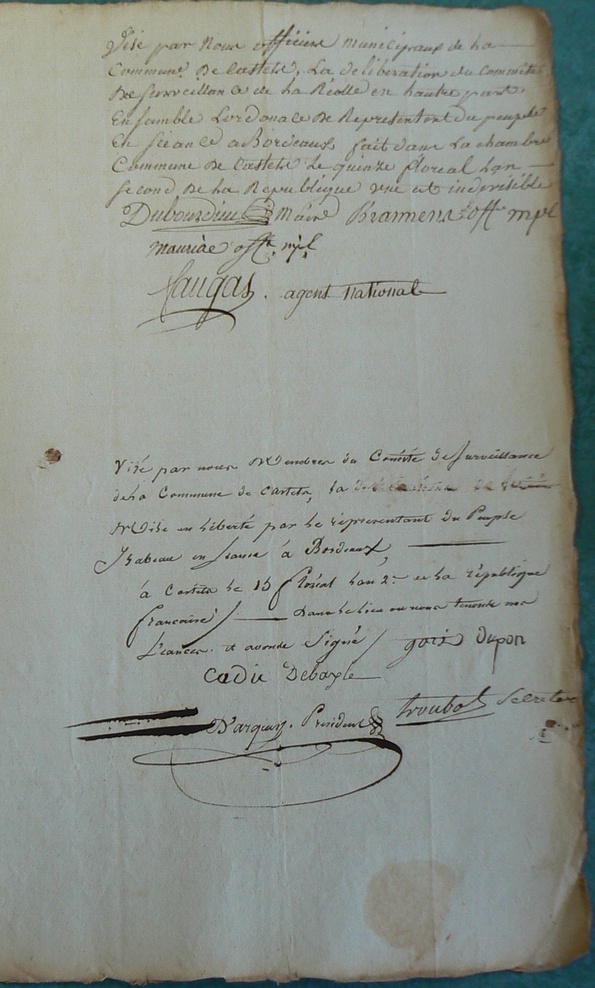 Visé par Nous officiers municipaux de la
Commune. De Castets, La deliberation du Committé
De Surveillance de La Réolle en hautre part
Ensamble Lordonance De Representent du peuple
En Seance a Bordeaux fait dans La chambre
Commune De Castets Le quinze floreal Lan
Second De La Republique une et indivisible
Dubourdieu Maire Brannens off. mpl
mauriac off. mpl
faugas. agent national
Visé par nous Membres du Comité de Surveillance
de la Commune de Castets, la
Mise en Liberté par le représentant du Peuple
Isabeau en seance à Bordeaux,
à Castets le 15 floréal Lan 2e. de la république
francaise / Dans le lieu ou nous tenons nos
Séances et avons Signé / Dupon
Cadis Debayle
Président troubat Secretaire